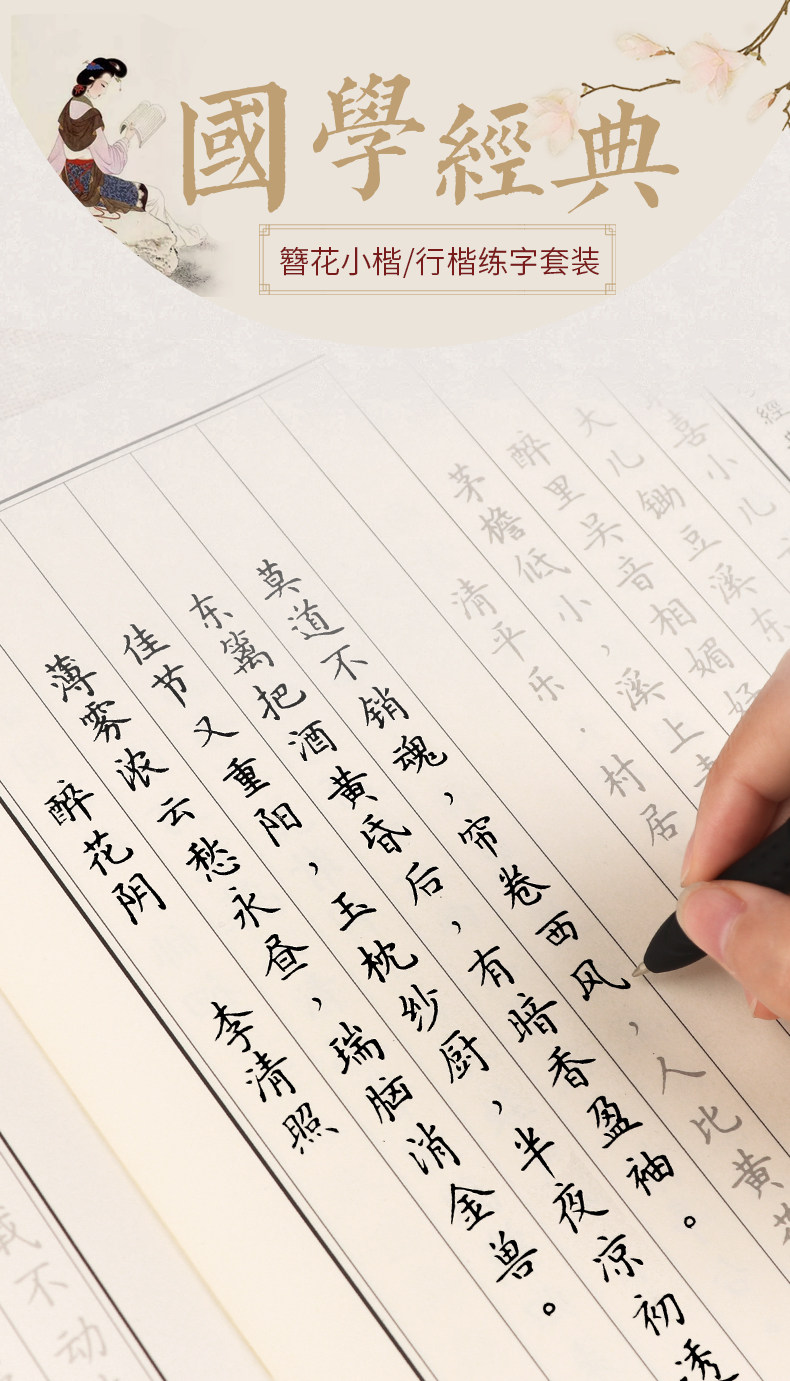 國學經典
簪花小楷/行楷练字套装
醉花阴 李清照
薄雾浓云愁永昼，瑞脑消金兽。
佳节又重阳，玉枕纱厨，半夜凉初透
东篱把酒黄昏后，有暗香盈袖。
莫道不销魂，帘卷西风，人比黄花
清平乐·村居
茅檐低小，溪上
醉里吴音相媚好
大儿锄豆溪东
喜小儿
經
不动